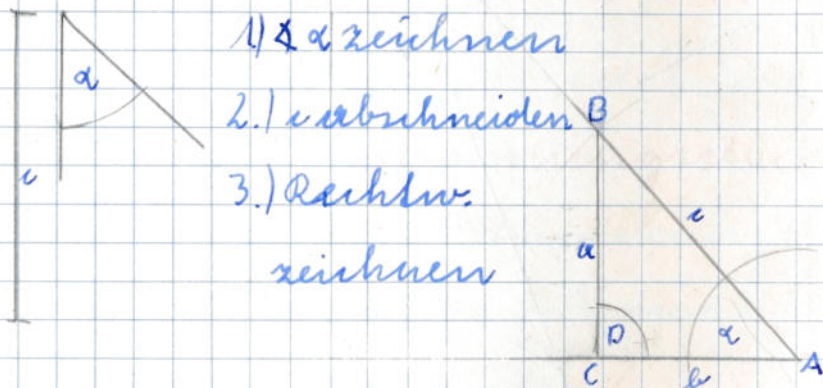 c
α
1) ∢ α zeichnen
2.) c abschneiden
3.) Rechtw.
zeichnen
B
a
c
D
α
C
b
A